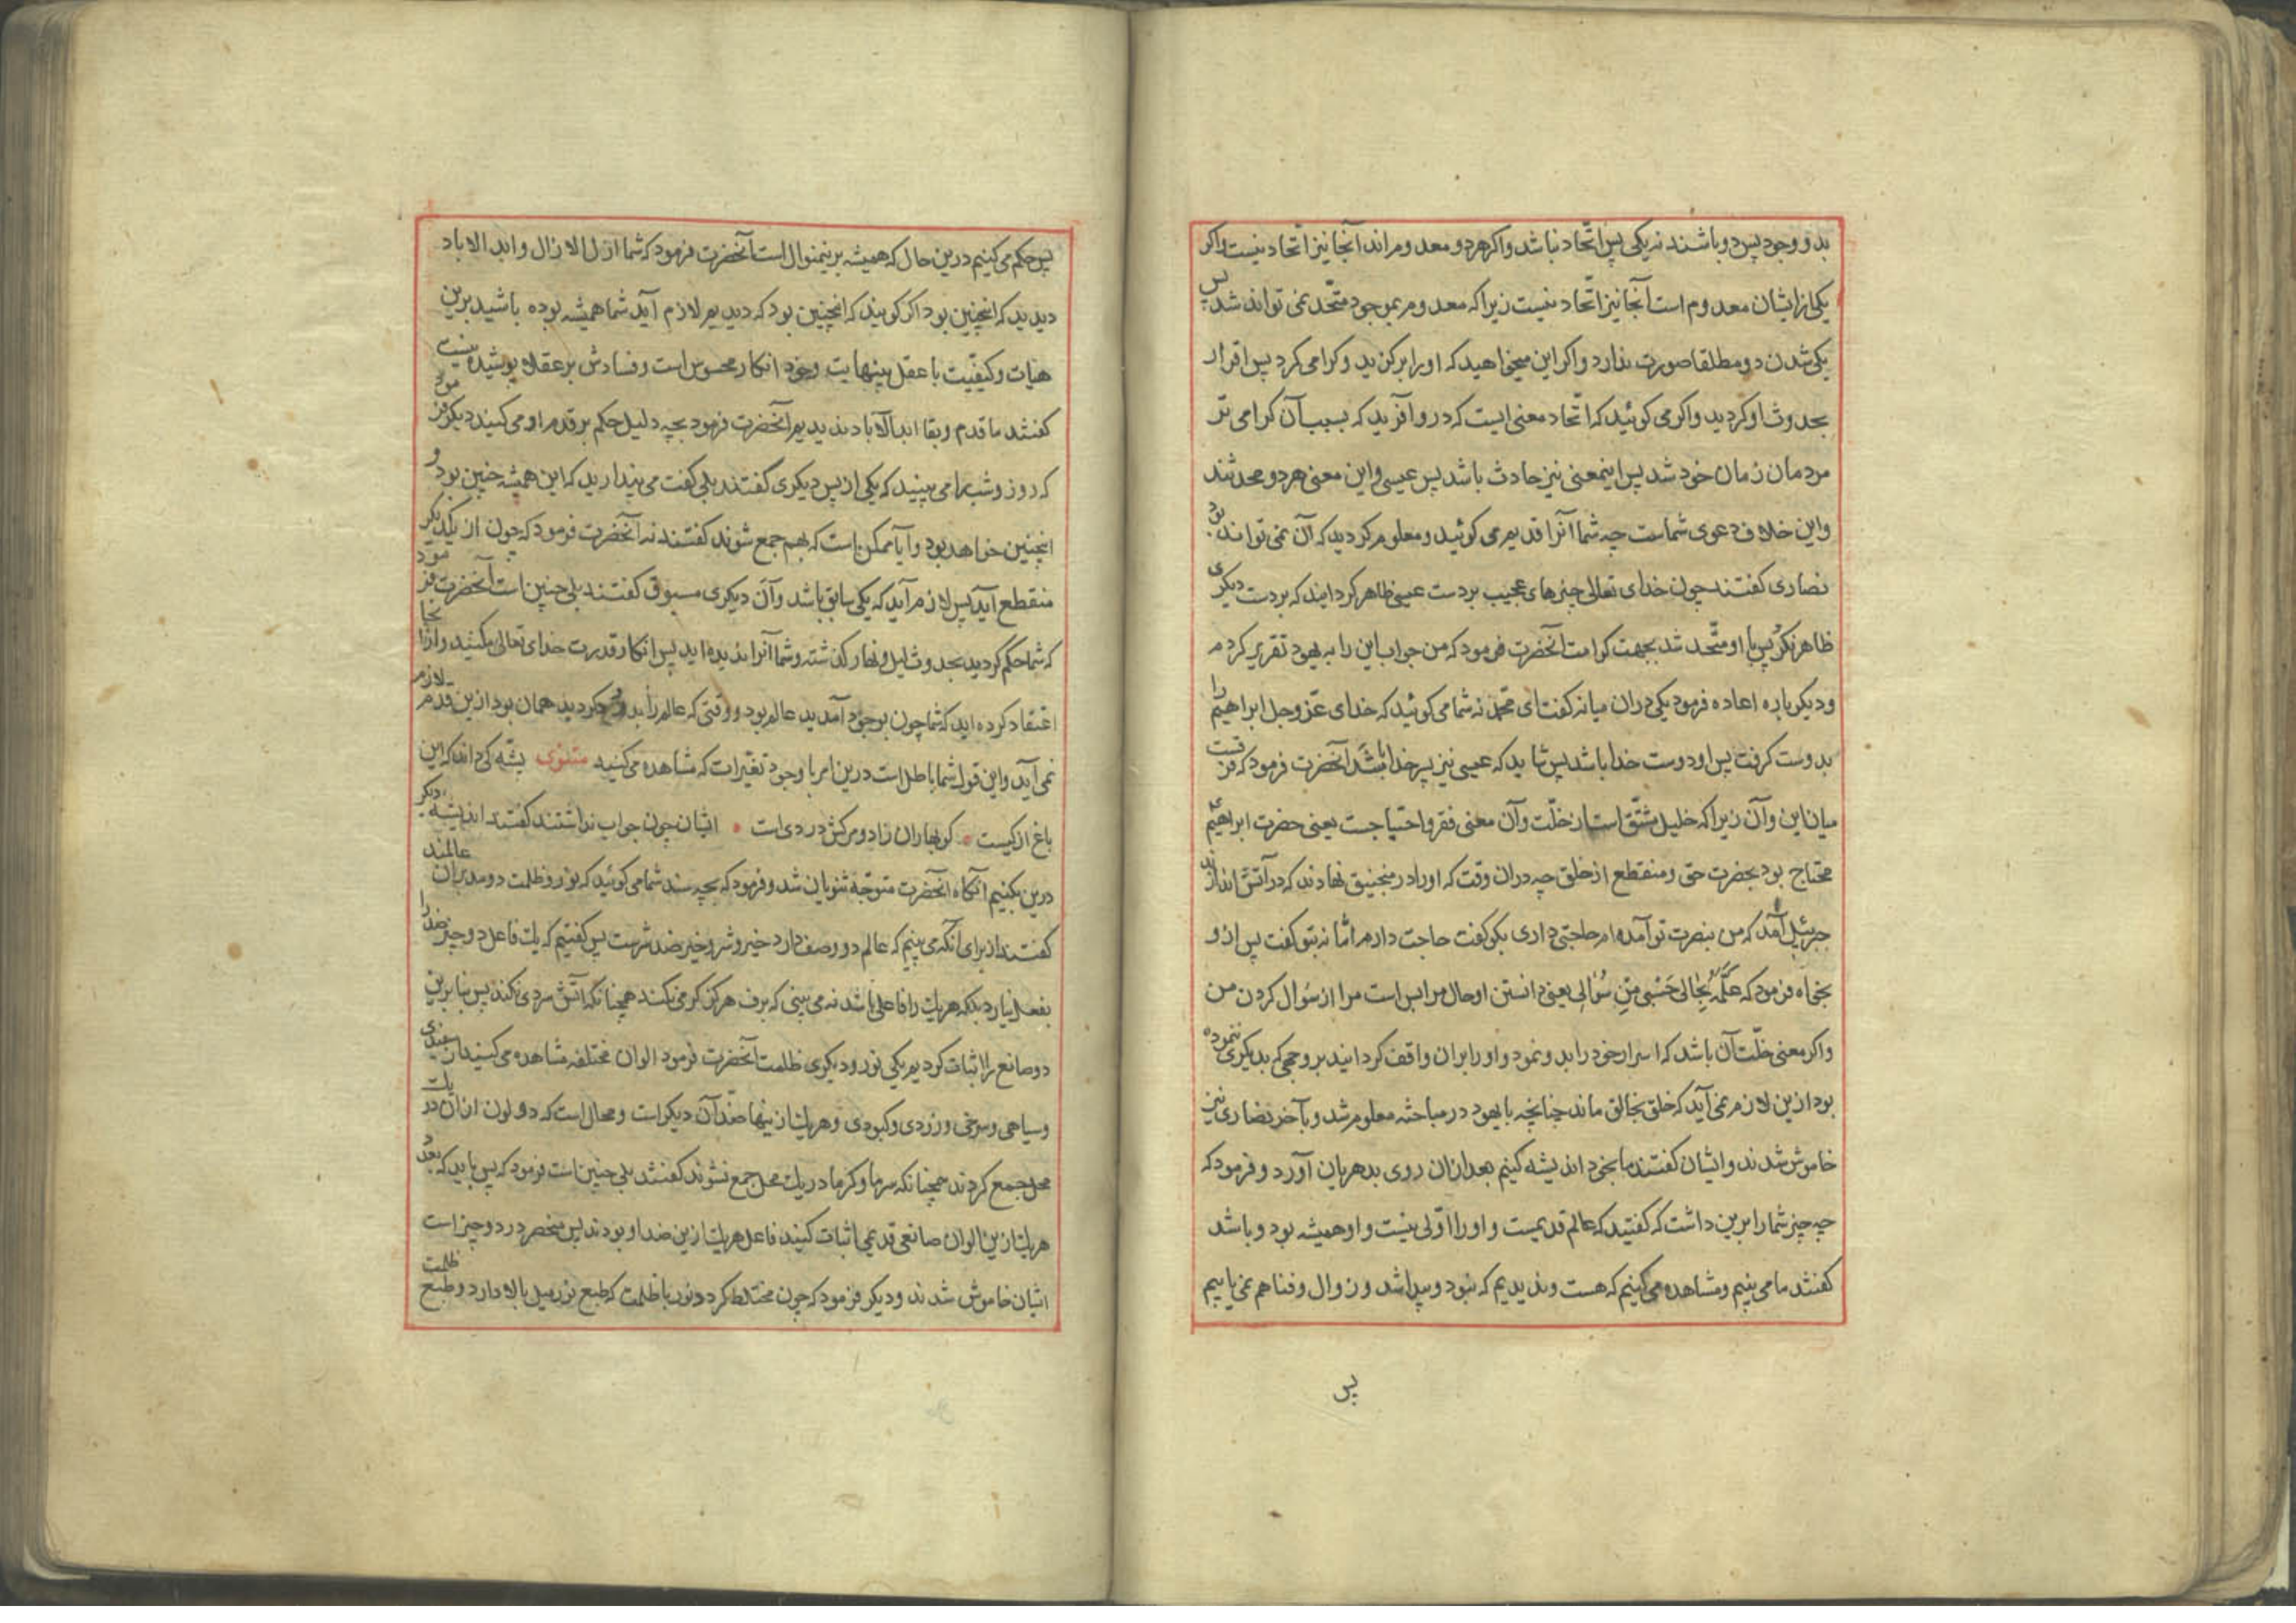 بدو وجود پس دو باشند نه یکی پس اتّحاد نباشد و اکر هردو معدومراند آنجا نیز اتحاد نیست و اکر
یکی از ایشان معدوم است آنجا نیز اتّحاد نیست زیرا که معدومر بموجود متّحد نمی تواند شد پس
یکی شدن دو مطلقا صورت ندارد و اکر این میخواهید که او را برکزید و کرامی کرد پس اقرار
بحدوث او کردید و اکر می کوئید که اتّحاد معنی ایست که در او آفرید که بسبب آن کرامی تر
مردمان زمان خود شد پس اینمعنی نیز حادث باشد پس عیسی و این معنی هردو محدثند
و این خلاف دعوی شماست چه شما آنرا قدیم می کوئید و معلوم کردید که آن نمی تواند بود
نصاری کفتند چون خدای تعالی چیزهای عجیب بر دست عیسی ظاهر کردانید که بر دست دیکری
ظاهر نکرد پس با او متّحد شد بجهت کرامت آنحضرت فرمود که من جواب این را به یهود تقریر کردم
و دیکر باره اعاده فرمود یکی دران میانه کفت ای محمّد نه شما می کوئید که خدای عزّ وجل ابراهیم را
بدوست کرفت پس او دوست خدا باشد پس شاید که عیسی نیز پسر خدا باشد آنحضرت فرمود که فرقیست
میان این و آن زیرا که خلیل مشتّق است از خلّت و آن معنی فقر و احتیاجست یعنی حضرت ابراهیم
محتاج بود بحضرت حق و منقطع از خلق چه دران وقت که او را در منجنیق نهادند که در آتش اندازند
جبرئیل آمد که من بنصرت تو آمده ام حاجتی داری بکو کفت حاجت دارم امّا نه بتو کفت پس ازو
بخواه فرمود که عِلْمُهُ بِحالی حَسْبی مِنْ سُؤالی یعنی دانستن او حال مرا بس است مرا از سؤال کردن من
و اکر معنی خلّت آن باشد که اسرار خود را بدو نمود و او را بران واقف کردانید بر وجهی که بدیکری ننموده
بود ازین لازم نمی آید که خلق بخالق ماند چنانچه با یهود در مباحثه معلوم شد و بآخر نصاری نیز
خاموش شدند و ایشان کفتند ما بخود اندیشه کنیم بعد ازان روی بدهریان آورد و فرمود که
چه چیز شما را برین داشت که کفتید که عالم قدیمست و او را اوّلی نیست و او همیشه بود و باشد
کفتند ما می بینیم و مشاهده می کنیم که هست و ندیدیم که نبود و پیدا شد و زوال و فنا هم نمی یابیم
پس
پس حکم می کنیم درین حال که همیشه برینمنوال است آنحضرت فرمود که شما ازل الازال و ابد الاباد
دیدید که انچنین بود اکر کویند که انچنین بود که دیدیم لازم آید شما همیشه بوده باشید برین
هیات و کیفیّت با عقل بینهایت وخود انکار محسوس است و فسادش بر عقلا پوشیده نیست
کفتند ما قدم و بقا ابد الآباد ندیدیم آنحضرت فرمود بچه دلیل حکم بر قدم او می کنید دیکر فرمود
که روز و شب را می بینید که یکی از پس دیکری کفتند بلی کفت می پندارید که این همیشه چنین بود و
انچنین خواهد بود و آیا ممکن است که بهم جمع شوند کفتند نه آنحضرت فرمود که چون از یکدیکر
منقطع آید پس لازم آید که یکی سابق باشد و آن دیکری مسبوق کفتند بلی چنین است آنحضرت فرمود
که شما حکم کردید بحدوث لیل و نهار کذشته و شما آنرا ندیده اید پس انکار قدرت خدای تعالی مکنید و ازانجا
اعتقاد کرده اید که شما چون بوجود آمدید عالم بود و وقتی که عالم را بدرود کردید همان بود ازین قدم لازم
نمی آید و این قول شما باطل است درین امر با وجود تغیّرات که مشاهده می کنید مثنوی پشّه کی داند که این
باغ از کیست • کو بهاران زاد و مرکش در دی است • ایشان چون جواب نداشتند کفتند اندیشه دیکر
درین بکنیم آنکاه آنحضرت متوجّه ثنویان شد و فرمود که بچه سند شما می کوئید که نور و ظلمت دو مدبران عالمند
کفتند از برای آنکه می بینیم که عالم دو وصف دارد خیر و شر و خیر ضد شرست پس کفتیم که یک فاعل دو چیز ضد را
بفعل نیارد بلکه هریک را فاعلی باشد نه می بینی که برف هرکز کرم نمی کند همچنانکه آتش سردی نکند پس بنا برین
دو صانع را اثبات کردیم یکی نور و دیکری ظلمت آنحضرت فرمود الوان مختلفه مشاهده می کنید از سفیدی
و سیاهی و سرخی و زردی و کبودی و هریک از ینها ضدّ آن دیکر است و محال است که دو لون ازان در یک
محل جمع کردند همچنانکه سرما و کرما در یک محل جمع نشوند کفتند بلی چنین است فرمود که پس باید که بعدد
هریک ازین الوان صانعی قدیمی اثبات کنید فاعل هریک ازین ضد او بودند پس منحصر در دو چیز است
ایشان خاموش شدند و دیکر فرمود که چون مختلط کردد نور با ظلمت که طبع نور میل بالا دارد و طبع ظلمت